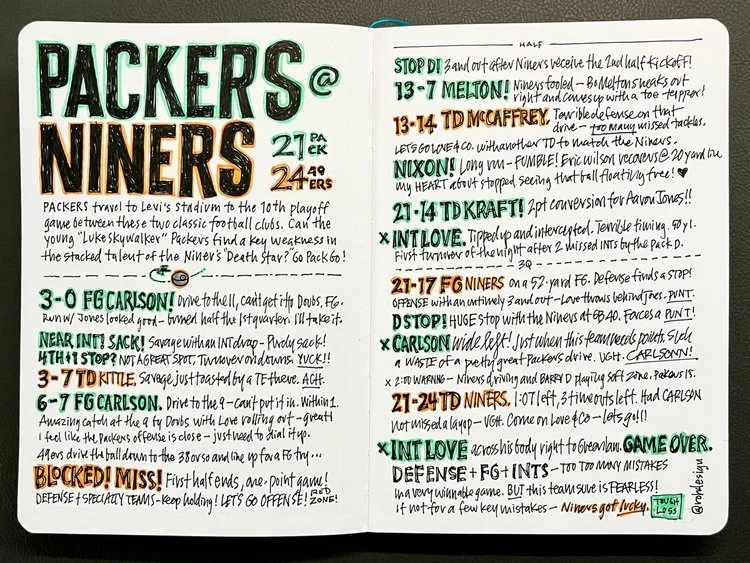 PACKERS @
NINERS
21 PACK
24 49ERS
PACKERS travel to Levi's Stadium to the 10th playoff
game between these two classic football clubs. Can the
young "Luke Skywalker" Packers find a key weakness in
the stacked talent of the Niner's "Death Star"? Go Pack Go!
3-0 FG CARLSON! Drive to the 11, can't get it to Doubs, FG.
Run w/ Jones looked good – burned half the 1st quarter. I'll take it.
NEAR INT! SACK! Savage with an INT drop – Purdy sack!
4TH+1 STOP? NOT A GREAT SPOT, Turnover on downs. YUCK!!
3-7 TD KITTLE. Savage just toasted by a TE there. ACH.
6-7 FG CARLSON. Drive to the 9 – can't put it in. Within 1.
Amazing catch at the 9 by Doubs with Love rolling out – great!
I feel like the Packers offense is close – just need to dial it up.
49ers drive the ball down to the 38 or so and line up for a FG try...
BLOCKED! MISS! First half ends, one-point game!
DEFENSE + SPECIALTY TEAMS – keep holding! LET'S GO OFFENSE! RED ZONE!
HALF
STOP D! 3 and out after Niners receive the 2nd half kickoff!
13-7 MELTON! Niners fooled – Bo Melton sneaks out
right and comes up with a toe tapper!
13-14 TD McCAFFREY. Terrible defense on that
drive – too many missed tackles.
LETS GO LOVE & CO. with another TD to match the Niners.
NIXON! Long run – FUMBLE! Eric Wilson recovers @ 20 yard line
My HEART about stopped seeing that ball floating free! ♥
21-14 TD KRAFT! 2pt conversion for Aaron Jones!!
x INT LOVE. Tipped up and intercepted. Terrible timing. 50 y l.
First turnover of the night after 2 missed INTs by the Pack D.
3Q
21-17 FG NINERS on a 52-yard FG. Defense finds a STOP!
OFFENSE with an untimely 3 and out – Love throws behind Jones. PUNT.
D STOP! HUGE stop with the Niners at GB 40. Forces a PUNT!
x CARLSON wide left! Just when this team needs points. Such
a WASTE of a pretty great Packers drive. UGH. CARLSONN!
x 2:00 WARNING – Niners driving and BARRY D playing soft zone. Pack on 15.
21-24 TD NINERS. 1:07 left, 3 timeouts left. Had CARLSON
not missed a layup – UGH. Come on Love & Co – lets go!!!
x INT LOVE across his body right to Greenlaw. GAME OVER.
DEFENSE + FG + INTS – TOO TOO MANY MISTAKES
in a very winnable game. BUT this team sure is FEARLESS!
If not for a few key mistakes – Niners got lucky. TOUGH LOSS
@rohdesign